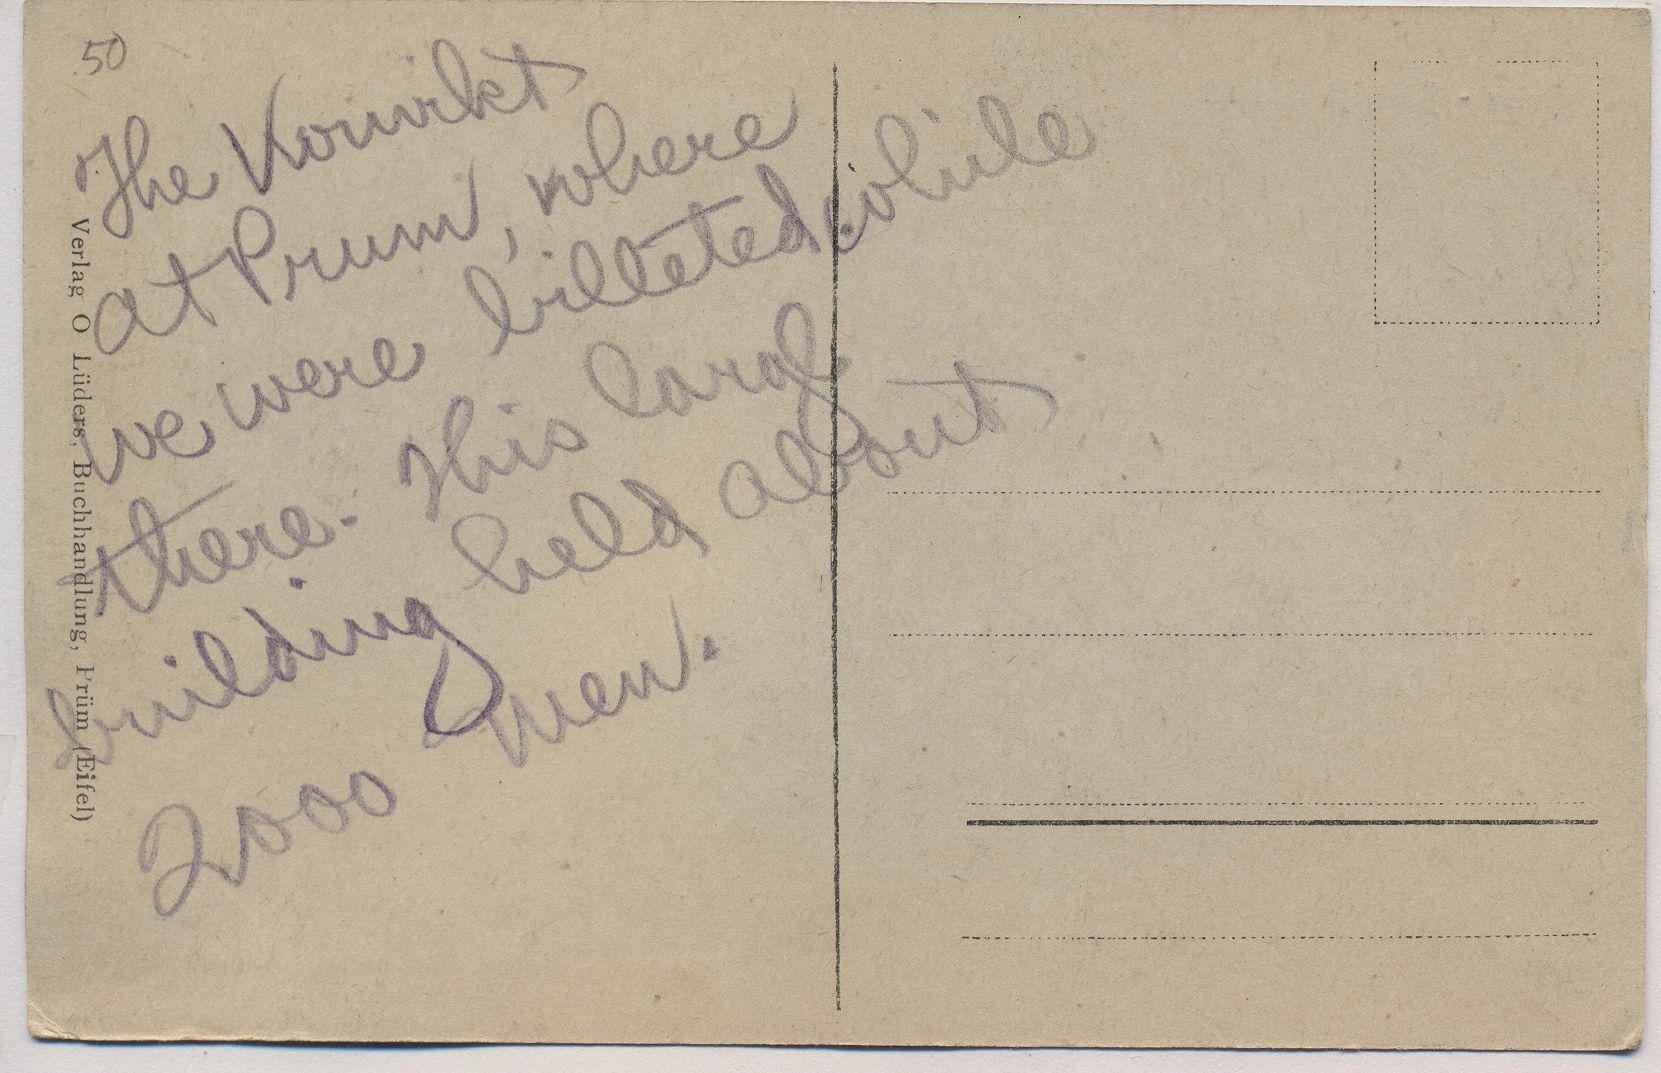 50
The Konvikt
at Prum, where
we were billeted while
there. This large
building held about
2000 men.
Verlag O Lüders, Buchhandlung, Prüm (Eifel)